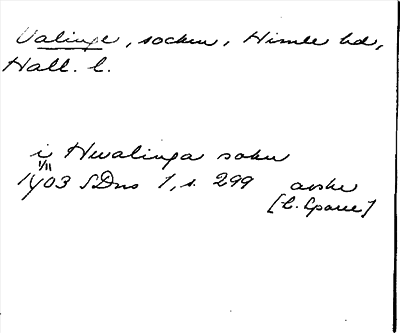 Valinge, socken, Himle hd,
Hall. l.
i Hwalinga sokn
1/11
1403 SDns 1, s. 299 avskr
[C. Sparre]